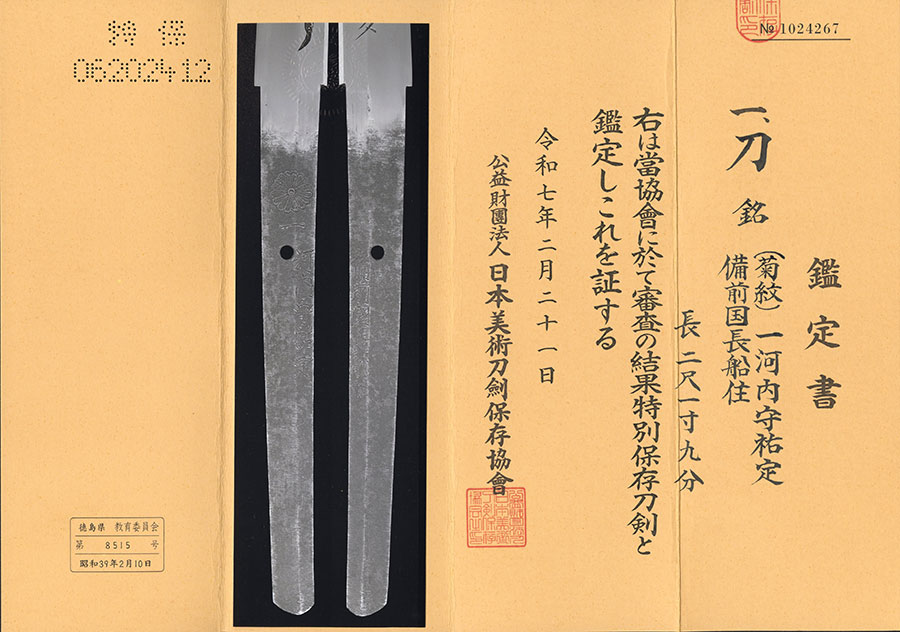 鑑定書
一、刀 銘 (菊紋)一河内守祐定
備前国長船住
長二尺一寸九分
右は當協會に於て審査の結果特別保存刀剣と
鑑定しこれを証する
令和七年二月二十一日
公益財團法人 日本美術刀劍保存協會
№ 1024267
特保
06202412
徳島県 教育委員会
第 8515 号
昭和39年2月10日